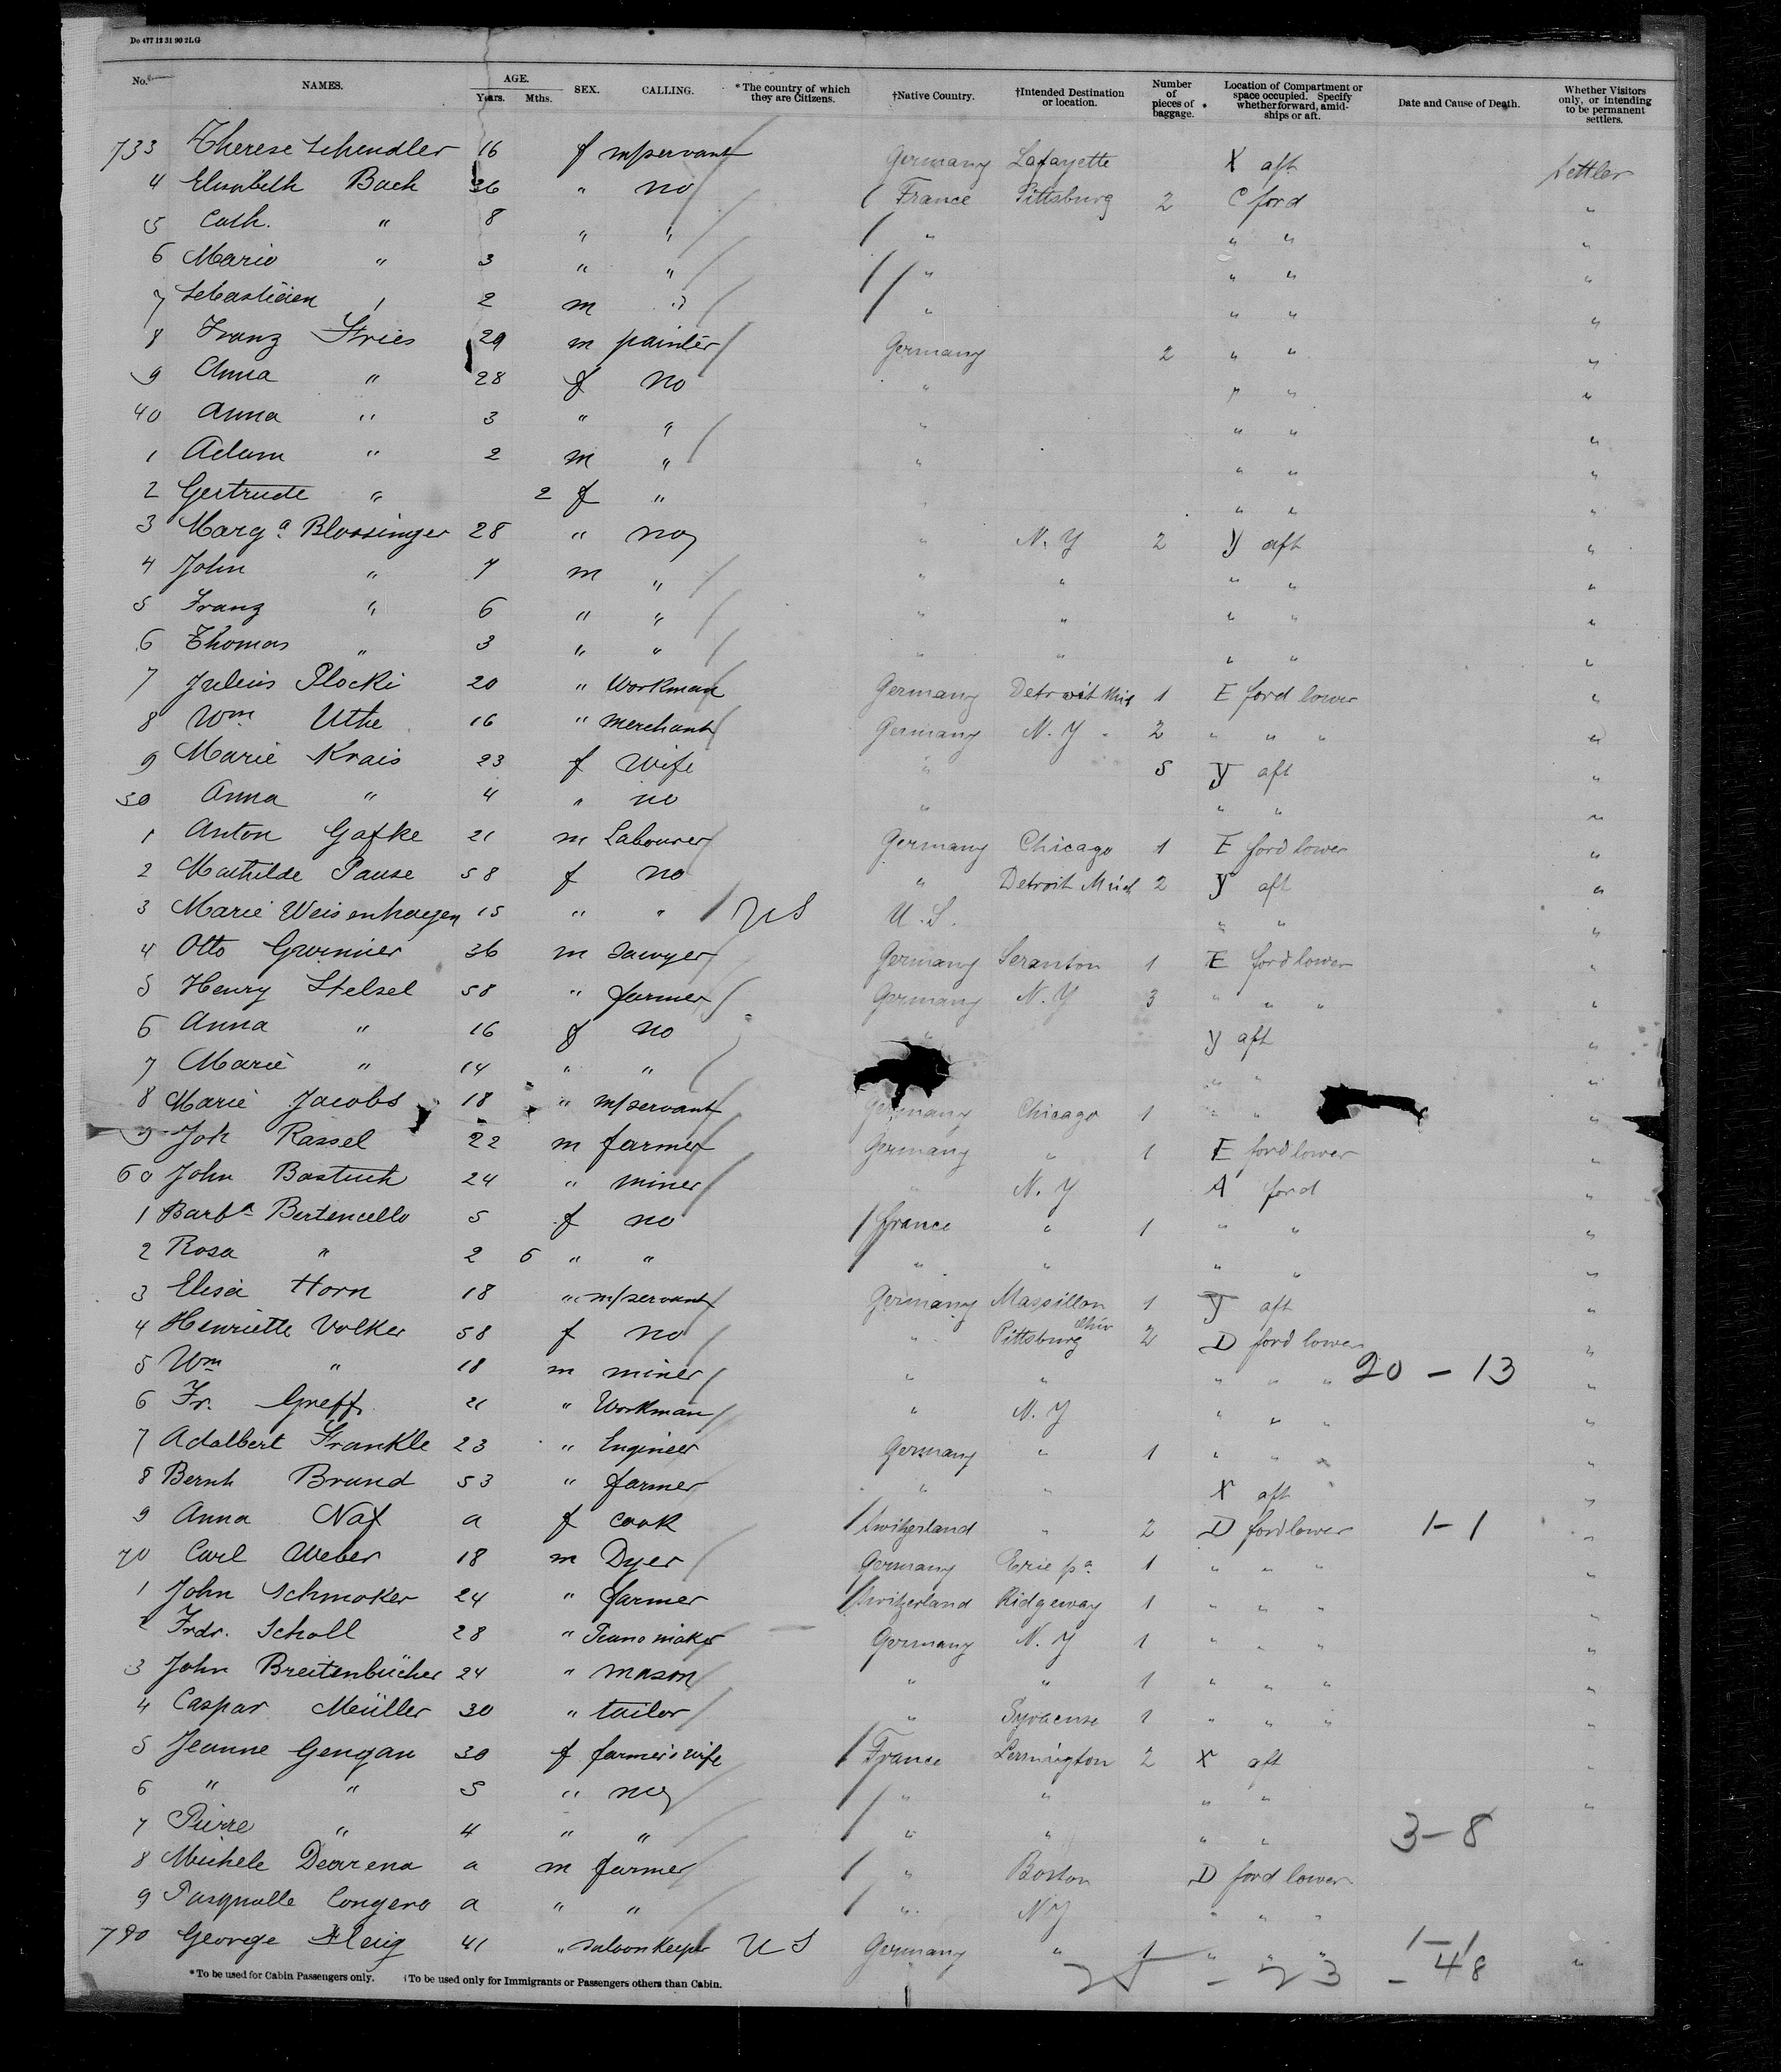 Do 477 12 31 90 2LG
No. NAMES. AGE. Years. Mths. SEX. CALLING. *The country of which they are Citizens. †Native Country. †Intended Destination or location. Number of pieces of baggage. Location of Compartment or space occupied. Specify whether forward, amidships or aft. Date and Cause of Death. Whether Visitors only, or intending to be permanent settlers.
733 Therese Schendler 16 f m/servant Germany Lafayette X aft Settler
4 Elisabeth Bach 36 " no France Pittsburg 2 C ford "
5 Cath. " 8 " " " " " "
6 Marie " 3 " " " " " "
7 Sebastien " 2 m " " " " "
8 Franz Fries 29 m painter Germany 2 " " "
9 Anna " 28 f no " " " "
40 Anna " 3 " " " " " "
1 Adam " 2 m " " " " "
2 Gertrude " 2 f " " " " "
3 Marga Blossinger 28 " no " N.Y 2 Y aft "
4 John " 7 m " " " " " "
5 Franz " 6 " " " " " " "
6 Thomas " 3 " " " " " " "
7 Julius Plocki 20 " Workman Germany Detroit Mich 1 E ford lower "
8 Wm Uthe 16 " merchant Germany N.Y. 2 " " " "
9 Marie Krais 23 f Wife " 5 Y aft "
50 Anna " 4 " no " " " "
1 Anton Gafke 21 m Labourer Germany Chicago 1 E ford lower "
2 Mathilde Pause 58 f no " Detroit Mich 2 Y aft "
3 Marie Weisenhagen 15 " " US U.S. " " "
4 Otto 36 m sawyer Germany Scranton 1 E ford lower "
5 Henry Stelzel 58 " farmer Germany N.Y 3 " " " "
6 Anna " 16 f no Y aft "
7 Marie " 14 " " " " "
8 Marie Jacobs 18 " m/servant Germany Chicago 1 " " "
9 Joh Rassel 22 m farmer Germany " 1 E ford lower "
60 John Bastuck 24 " miner N.Y A ford "
1 Barba Bertencello 5 f no france " 1 " " "
2 Rosa " 2 6 " " " " " " "
3 Elisa Horn 18 " m/servant Germany Massillon Ohio 1 Y aft "
4 Henriette Volker 58 f no " Pittsburg 2 D ford lower "
5 Wm " 18 m miner " " " " " 20 - 13 "
6 Fr. Greff 21 " Workman " N.Y " " " "
7 Adalbert Frankle 23 " Engineer Germany " 1 " " " "
8 Bernh Brund 53 " farmer " " X aft "
9 Anna Naf a f cook Switzerland " 2 D ford lower 1-1 "
70 Carl Weber 18 m Dyer Germany Erie pa 1 " " " "
1 John Schmoker 24 " farmer Switzerland Ridgeway 1 " " " "
2 Frdr. Scholl 28 " Pianomaker Germany N.Y 1 " " " "
3 John Breitenbücher 24 " mason " " 1 " " " "
4 Caspar Müller 30 " tailor " Syracuse 1 " " " "
5 Jeanne Gengan 30 f farmer's wife France 2 X aft "
6 " " 5 " no " " " " "
7 Pierre " 4 " " " " " " 3-8
8 Michele a m farmer " Boston D ford lower
9 Pasqualle Congero a " " " NY " " "
790 George Fleig 41 " saloonkeeper US Germany " 1 " " " 1-1 "
25 - 23 - 48
*To be used for Cabin Passengers only. †To be used only for Immigrants or Passengers others than Cabin.